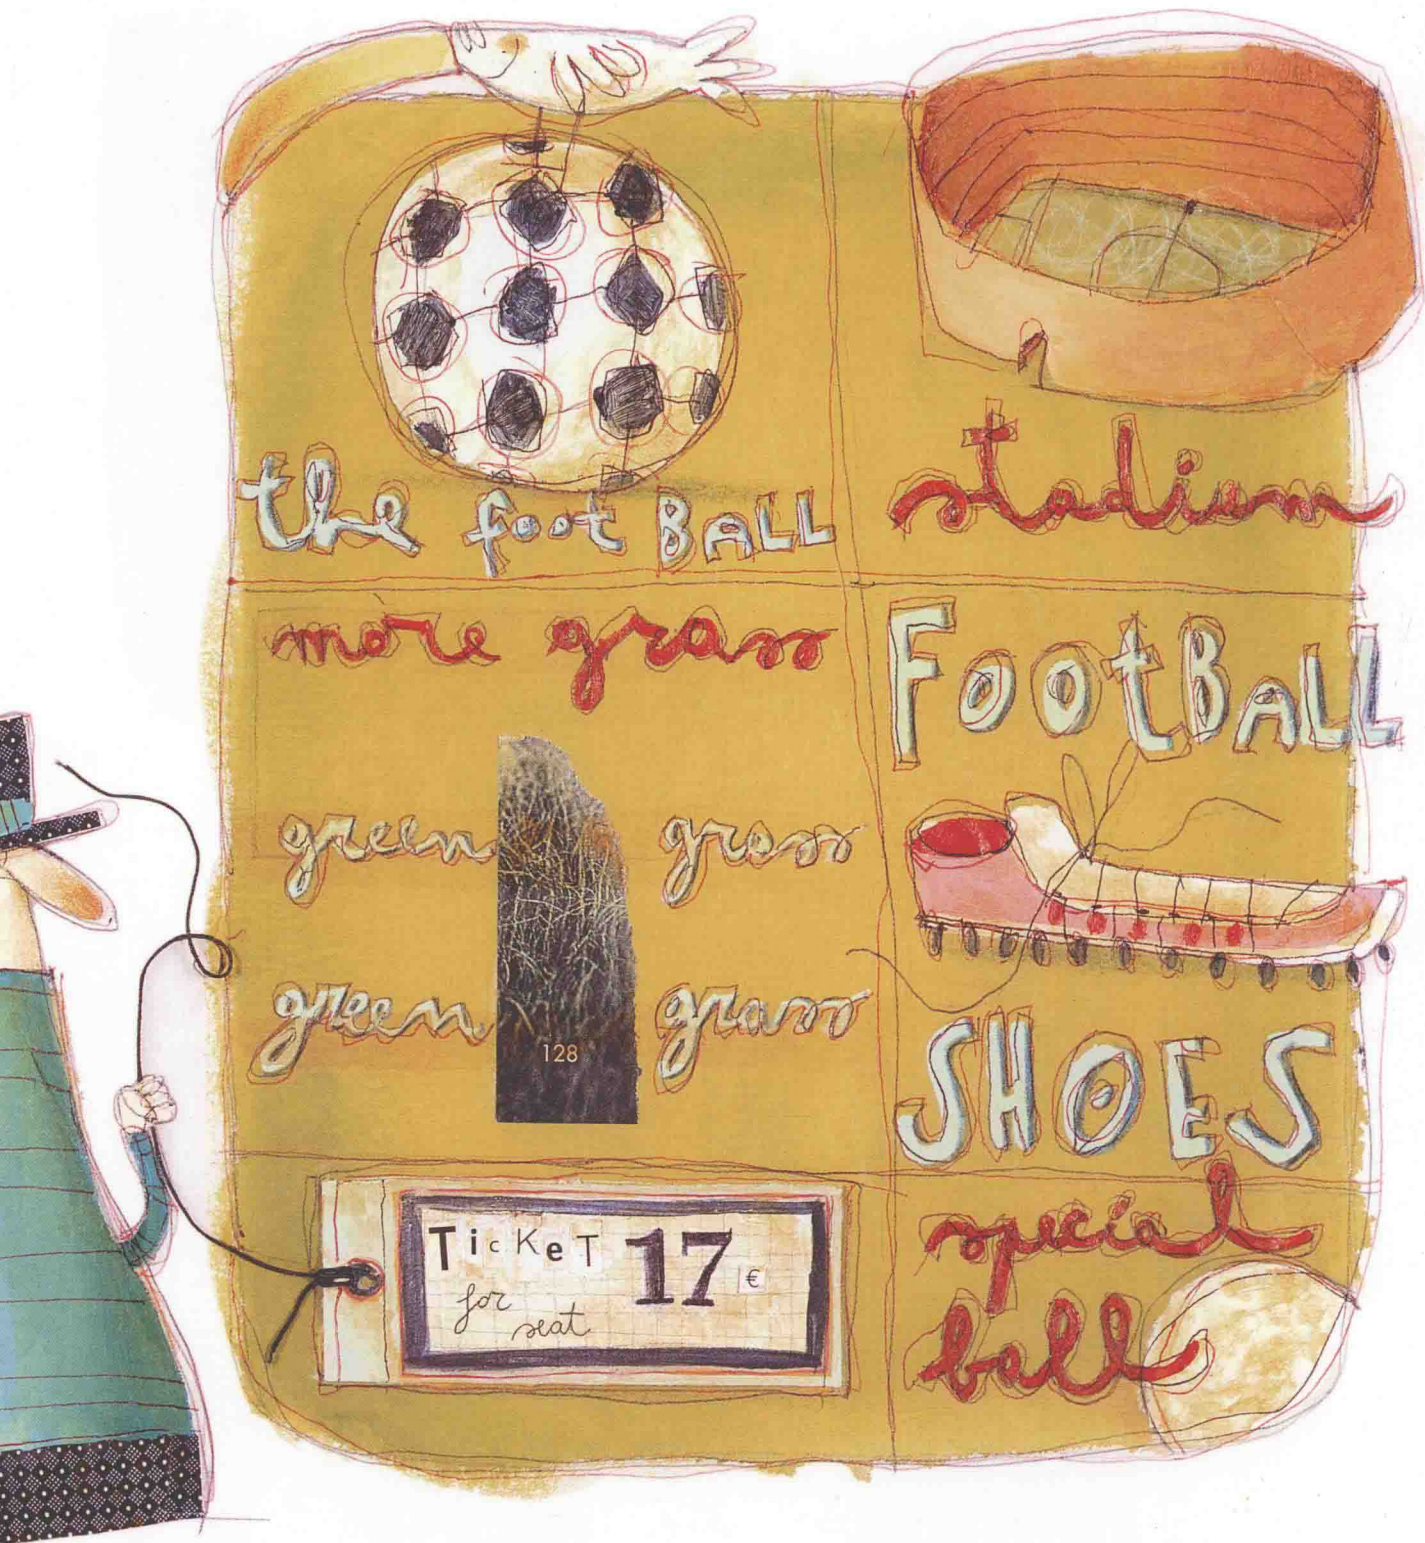 the footBALL
stadium
more grass
green grass
green grass
128
FootBALL
SHOES
TicKeT 17 €
for
seat
special
ball